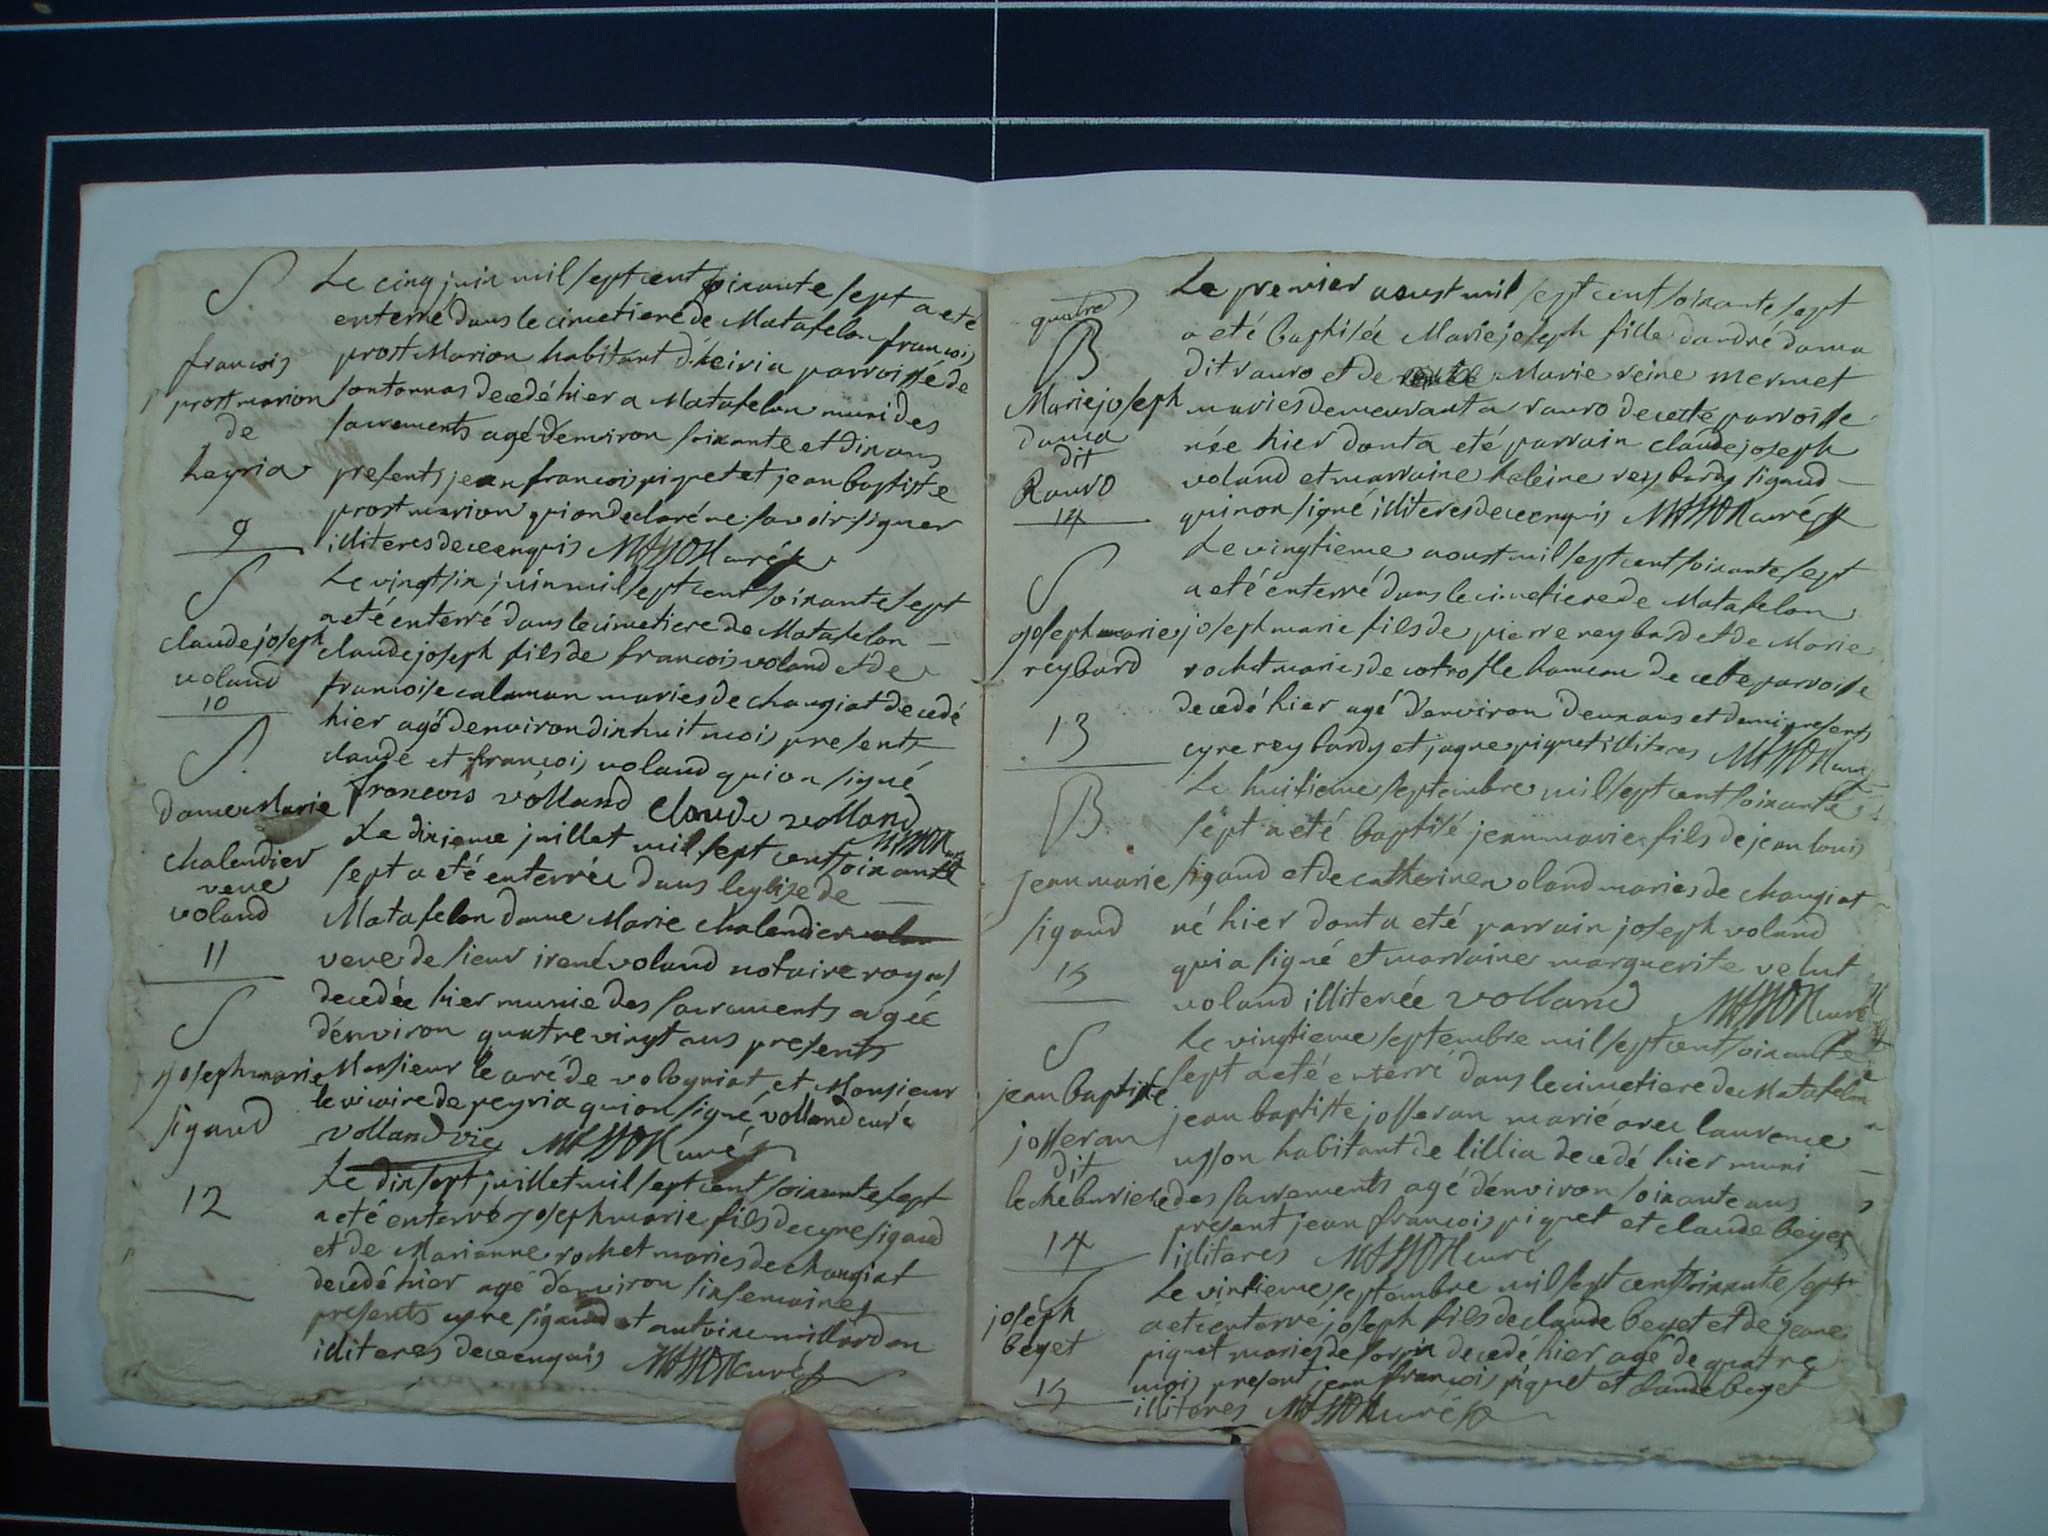 S
françois
prost marion
de
heyria
9
Le cinq juin mil sept cent soixante sept a eté
enterré dans le cimetiere de Matafelon françois
prost Marion habitant d'heiria parroisse de
sontonnas decedé hier a Matafelon muni des
sacrements agé d'environ soixante et dix ans
presents jean françois piquet et jean baptiste
prost marion qui on declaré ne savoir signer
illiteres de ce enquis MASSON curé
S
claude joseph
voland
10
Le vingt six juin mil sept cent soixante sept
a eté enterré dans le cimetiere de Matafelon
claude joseph fils de françois voland et de
francoise calaman mariés de changiat decedé
hier agé d'environ dix huit mois presents
claude et françois voland qui on signé
francois volland claude volland
MASSON curé
S
dame Marie
chalendier
veve
voland
11
Le dixieme juillet mil sept cent soixante
sept a eté enterrée dans leglize de
Matafelon dame Marie chalendier
veve de sieur irené voland notaire royal
decedée hier munie des sacrements agée
d'environ quatre vingt ans presents
Monsieur le curé de vologniat et Monsieur
le vicaire de peyria qui on signé volland curé
volland vic MASSON curé
S
joseph marie
sigaud
12
Le dix sept juillet mil sept cent soixante sept
a eté enterré joseph marie fils de cyre sigaud
et de Marianne rochet mariés de changiat
decedé hier agé d'environ six semaines
presents cyre sigaud et antoine millardon
illiteres de ce enquis MASSON curé
quatre
B
Marie joseph
dama
dit
Rauro
14
Le premier aoust mil sept cent soixante sept
a eté baptisée Marie joseph fille dandré dama
dit rauro et de Marie reine mermet
mariés demeurant a rauro de cette parroisse
née hier dont a eté parrain claude joseph
voland et marraine heleine reybardy sigaud
qui non signé illiteres de ce enquis MASSON curé
S
joseph marie
reybard
13
Le vingtieme aoust mil sept cent soixante sept
a eté enterré dans le cimetiere de Matafelon
joseph marie fils de pierre reybard et de Marie
rochet mariés de cotrosse hameau de cette parroisse
decedé hier agé d'environ deux ans et demi presents
cyre reybardy et jaque piquet illiteres MASSON curé
B
jean marie
sigaud
15
Le huitieme septembre mil sept cent soixante
sept a eté baptisé jean marie fils de jean louis
sigaud et de catherine voland mariés de changiat
né hier dont a eté parrain joseph voland
qui a signé et marraine marguerite velut
voland illiterée volland MASSON curé
S
jean baptiste
josseran
dit
14
Le vingtieme septembre mil sept cent soixante
sept a eté enterré dans le cimetiere de Matafelon
jean baptiste josseran marié avec laurence
usson habitant de lillia decedé hier muni
des sacrements agé d'environ soixante ans
present jean françois piquet et claude beyet
illiteres MASSON curé
S
joseph
beyet
15
Le vintieme septembre mil sept cent soixante sept
a eté enterré joseph fils de claude beyet et de jeane
piquet mariés de corcia decedé hier agé de quatre
mois present jean françois piquet et claude beyet
illiteres MASSON curé